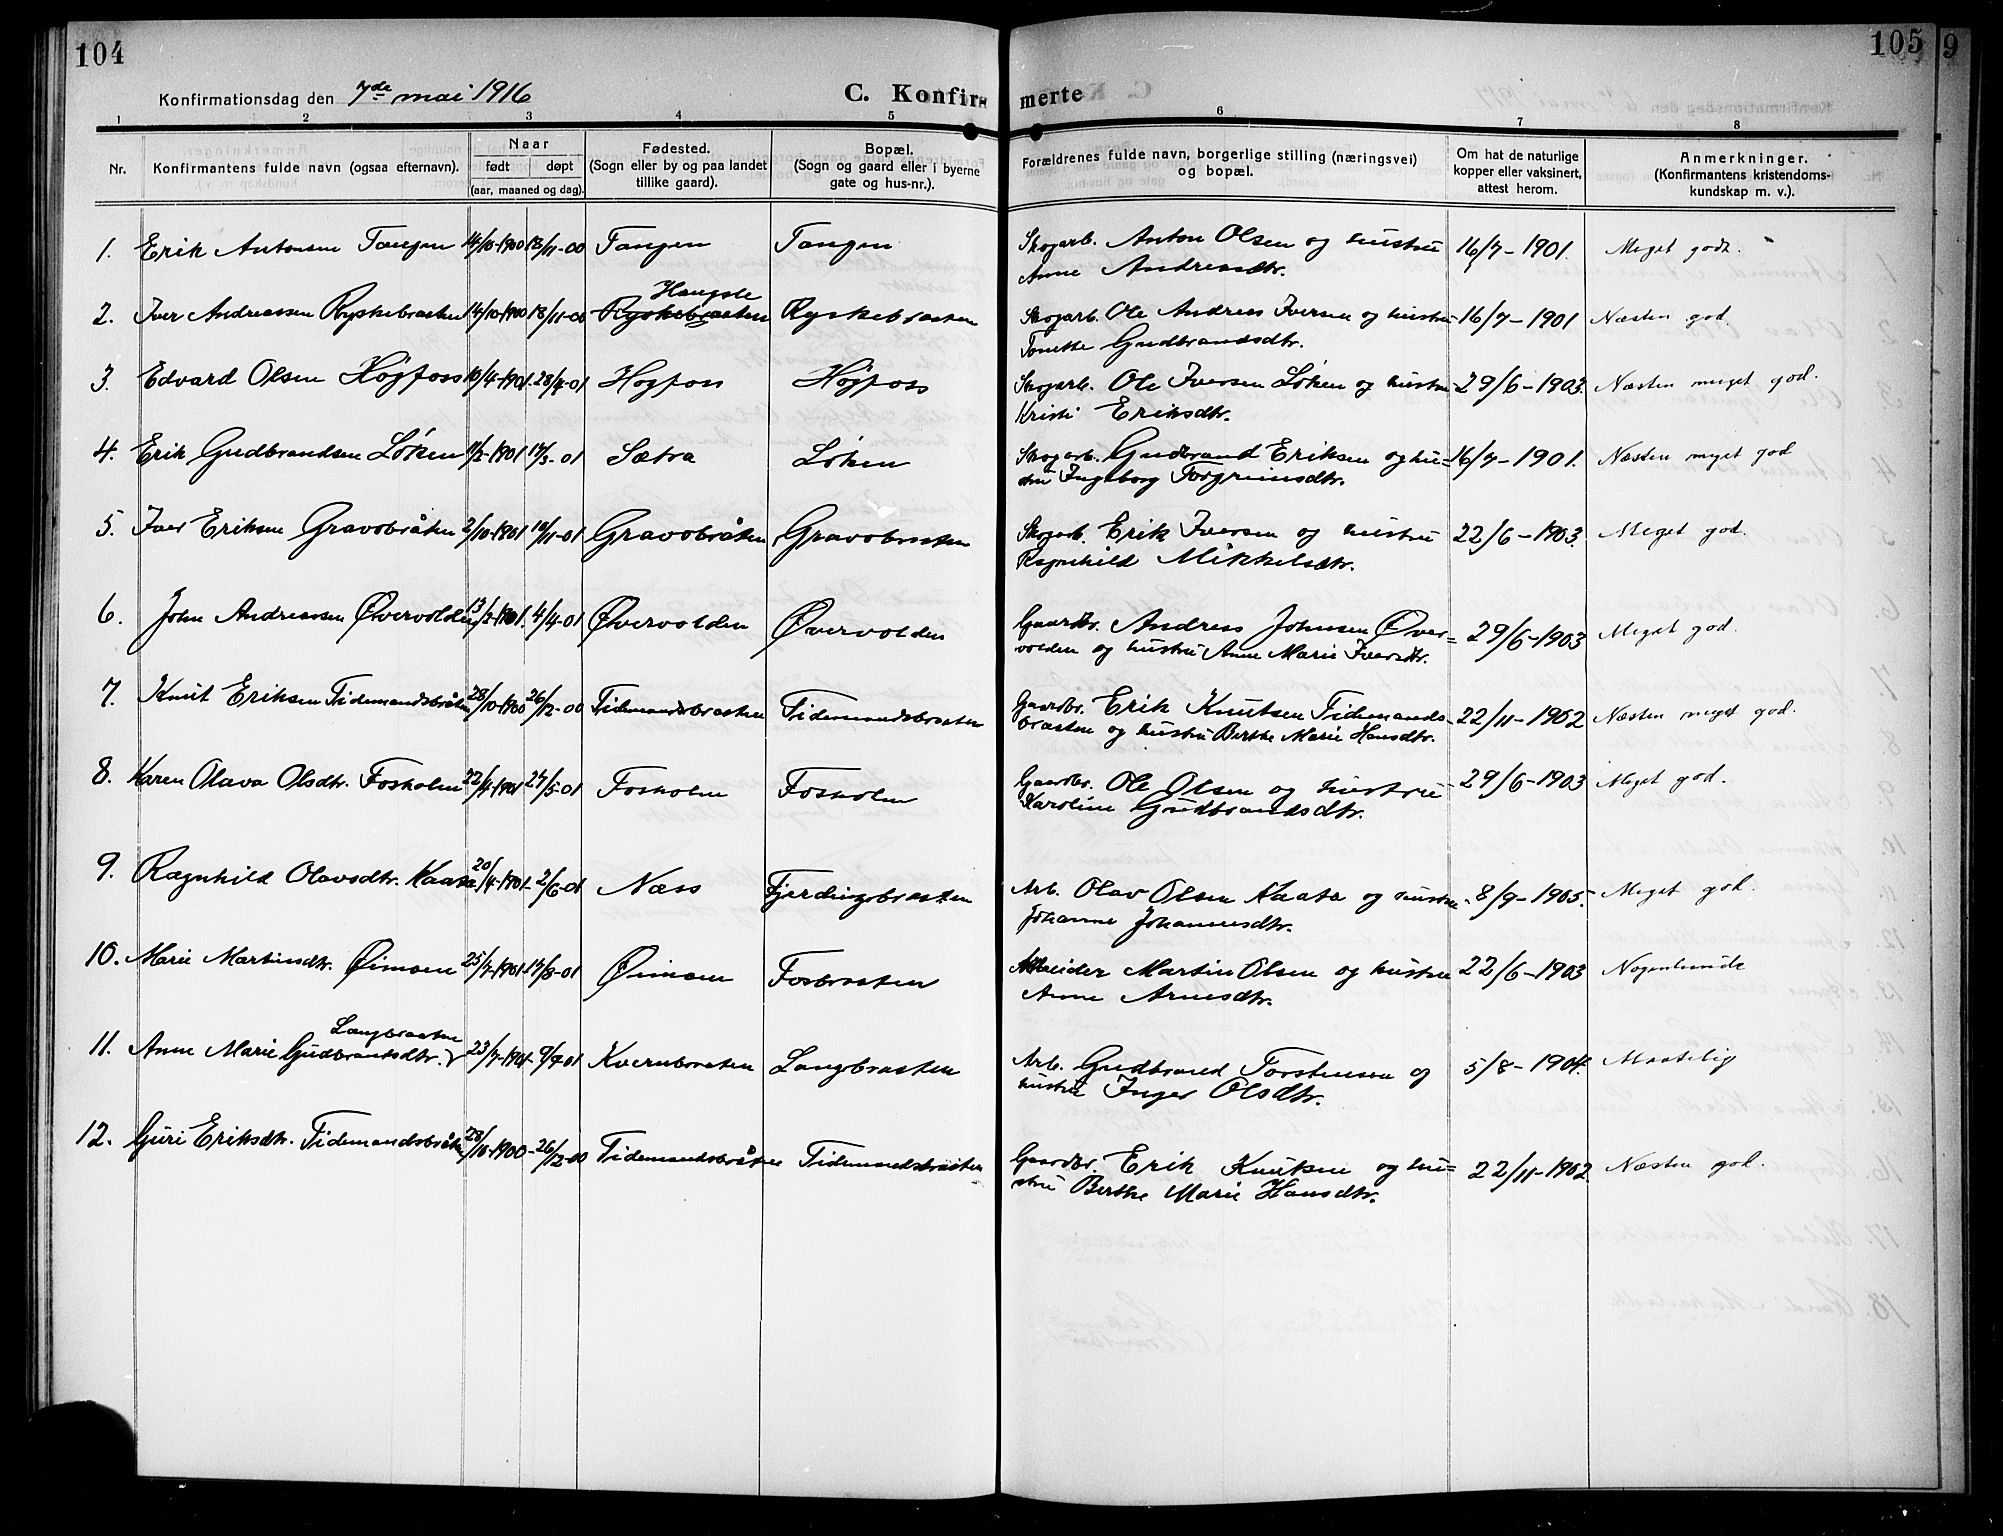 104
105
9
Konfirmationsdag den 7de mai 1916
C. Konfirmerte
1 2 3 4 5 6 7 8
Nr.
Konfirmantens fulde navn (ogsaa efternavn).
Naar
født døpt
(aar, maaned og dag).
Fødested.
(Sogn eller by og paa landet
tillike gaard).
Bopæl.
(Sogn og gaard eller i byerne
gate og hus-nr.).
Forældrenes fulde navn, borgerlige stilling (næringsvei)
og bopæl.
Om hat de naturlige
kopper eller vaksinert,
attest herom.
Anmerkninger.
(Konfirmantens kristendoms-
kundskap m. v.).
1. Erik Antonsen Tangen 14/10-1900 18/11-00 Tangen Tangen Skogarb. Anton Olsen og hustru 16/7-1901. Meget godt.
Anne Andreasdtr.
Haugsle
2. Iver Andreassen Ryskebraaten 14/10-1900 18/11-00 Ryskebraaten Ryskebraaten Skogarb. Ole Andreas Iversen og hustru 16/7-1901 Næsten god.
Tonette Gudbrandsdtr.
3. Edvard Olsen Høgfoss 10/4-1901. 28/4-01 Høgfoss Høgfoss Skogarb. Ole Iversen Løken og hustru 29/6-1903. Næsten meget god.
Kristi Eriksdtr.
4. Erik Gudbrandsen Løken 11/2-1901 17/3-01 Sætra Løken Skogarb. Gudbrand Eriksen og hu= 16/7-1901. Næsten meget god
stru Ingeborg Torgrimsdtr.
5. Iver Eriksen Gravobråten 2/10-1901 10/11-01 Gravobråten Gravobraaten Skogarb. Erik Iversen og hustru 22/6-1903. Meget god.
Ragnhild Mikkelsdtr.
6. John Andreassen Øvervolden 13/2-1901. 4/4-01 Øvervolden Øvervolden Gaardbr. Andreas Johnsen Øver= 29/6-1903 Meget god.
volden og hustru Anne Marie Iversdtr.
7. Knut Eriksen Tidemandsbråten 28/10-1900 26/12-00 Tidemandsbraaten Tidemandsbraaten Gaardbr. Erik Knutsen Tidemands- 22/11-1902 Næsten meget god.
braaten og hustru Berthe Marie Hansdtr.
8. Karen Olava Olsdtr. Fosholm 22/4-1901 27/5-01 Fosholm Fosholm Gaardbr. Ole Olsen og hustru 29/6-1903 Meget god.
Karoline Gudbrandsdtr.
9. Ragnhild Olavsdtr. Kaasa 20/4-1901- 2/6-01 Næss Fjerdingbraaten Arb. Olav Olsen Kaasa og hustru 8/9-1905. Meget god.
Johanne Johannesdtr.
10. Marie Martinsdtr. Øimoen 25/7-1901. 17/8-01 Øimoen Fosbraaten Arbeider Martin Olsen og hustru 22/6-1903 Nogenlunde
Anne Arnesdtr.
Langbraaten
11. Anne Marie Gudbrandsdtr. 23/7-1901- 9/9-01 Kvernbraaten Langbraaten Arb. Gudbrand Torstensen og 5/8-1904. Maatelig
hustru Inger Olsdtr.
12. Guri Eriksdtr. Tidemandsbråten 28/10-1900- 26/12-00 Tidemandsbråten Tidemandsbraaten Gaardbr. Erik Knutsen og hu= 22/11-1902. Næsten god.
stru Berthe Marie Hansdtr.